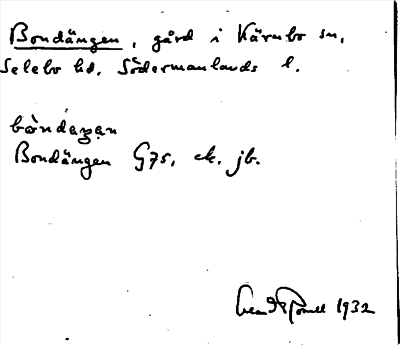 Bondängen, gård i Kärnbo sn,
Selebo hd, Södermanlands l.
bòndaŋan
Bondängen G75, ek. jb.
1932